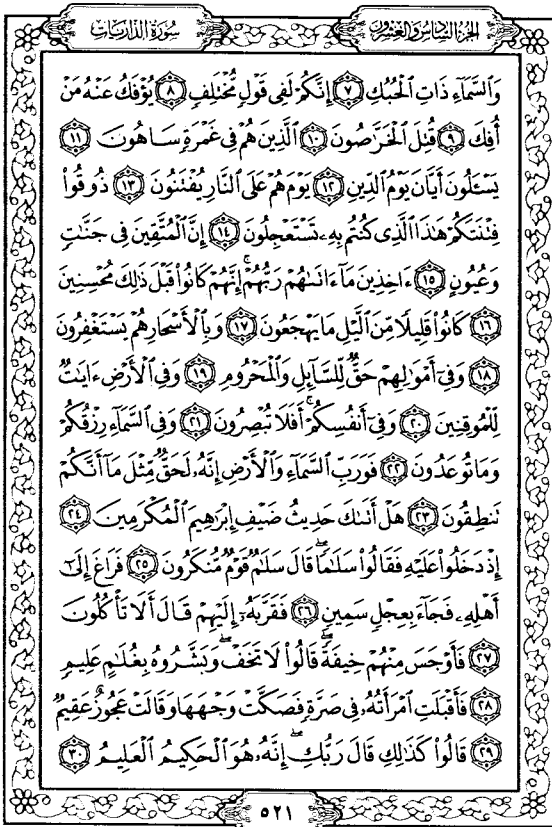 سورة الذاريات
الجزء السادس والعشرون
وَالسَّمَاءِ ذَاتِ الْحُبُكِ ٧ إِنَّكُمْ لَفِي قَوْلٍ مُّخْتَلِفٍ ٨ يُؤْفَكُ عَنْهُ مَنْ
أُفِكَ ٩ قُتِلَ الْخَرَّاصُونَ ١٠ الَّذِينَ هُمْ فِي غَمْرَةٍ سَاهُونَ ١١
يَسْـَٔلُونَ أَيَّانَ يَوْمُ الدِّينِ ١٢ يَوْمَ هُمْ عَلَى النَّارِ يُفْتَنُونَ ١٣ ذُوقُوا۟
فِتْنَتَكُمْ هَٰذَا الَّذِي كُنتُم بِهِۦ تَسْتَعْجِلُونَ ١٤ إِنَّ الْمُتَّقِينَ فِي جَنَّٰتٍ
وَعُيُونٍ ١٥ ءَاخِذِينَ مَآ ءَاتَىٰهُمْ رَبُّهُمْ ۚ إِنَّهُمْ كَانُوا۟ قَبْلَ ذَٰلِكَ مُحْسِنِينَ
١٦ كَانُوا۟ قَلِيلًا مِّنَ الَّيْلِ مَا يَهْجَعُونَ ١٧ وَبِالْأَسْحَارِ هُمْ يَسْتَغْفِرُونَ
١٨ وَفِىٓ أَمْوَٰلِهِمْ حَقٌّ لِّلسَّآئِلِ وَالْمَحْرُومِ ١٩ وَفِي الْأَرْضِ ءَايَٰتٌ
لِّلْمُوقِنِينَ ٢٠ وَفِىٓ أَنفُسِكُمْ ۚ أَفَلَا تُبْصِرُونَ ٢١ وَفِي السَّمَآءِ رِزْقُكُمْ
وَمَا تُوعَدُونَ ٢٢ فَوَرَبِّ السَّمَآءِ وَالْأَرْضِ إِنَّهُۥ لَحَقٌّ مِّثْلَ مَآ أَنَّكُمْ
تَنطِقُونَ ٢٣ هَلْ أَتَىٰكَ حَدِيثُ ضَيْفِ إِبْرَٰهِيمَ الْمُكْرَمِينَ ٢٤
إِذْ دَخَلُوا۟ عَلَيْهِ فَقَالُوا۟ سَلَٰمًا ۖ قَالَ سَلَٰمٌ قَوْمٌ مُّنكَرُونَ ٢٥ فَرَاغَ إِلَىٰٓ
أَهْلِهِۦ فَجَآءَ بِعِجْلٍ سَمِينٍ ٢٦ فَقَرَّبَهُۥٓ إِلَيْهِمْ قَالَ أَلَا تَأْكُلُونَ
٢٧ فَأَوْجَسَ مِنْهُمْ خِيفَةً ۖ قَالُوا۟ لَا تَخَفْ ۖ وَبَشَّرُوهُ بِغُلَٰمٍ عَلِيمٍ
٢٨ فَأَقْبَلَتِ امْرَأَتُهُۥ فِي صَرَّةٍ فَصَكَّتْ وَجْهَهَا وَقَالَتْ عَجُوزٌ عَقِيمٌ
٢٩ قَالُوا۟ كَذَٰلِكِ قَالَ رَبُّكِ ۖ إِنَّهُۥ هُوَ الْحَكِيمُ الْعَلِيمُ ٣٠
٥٢١